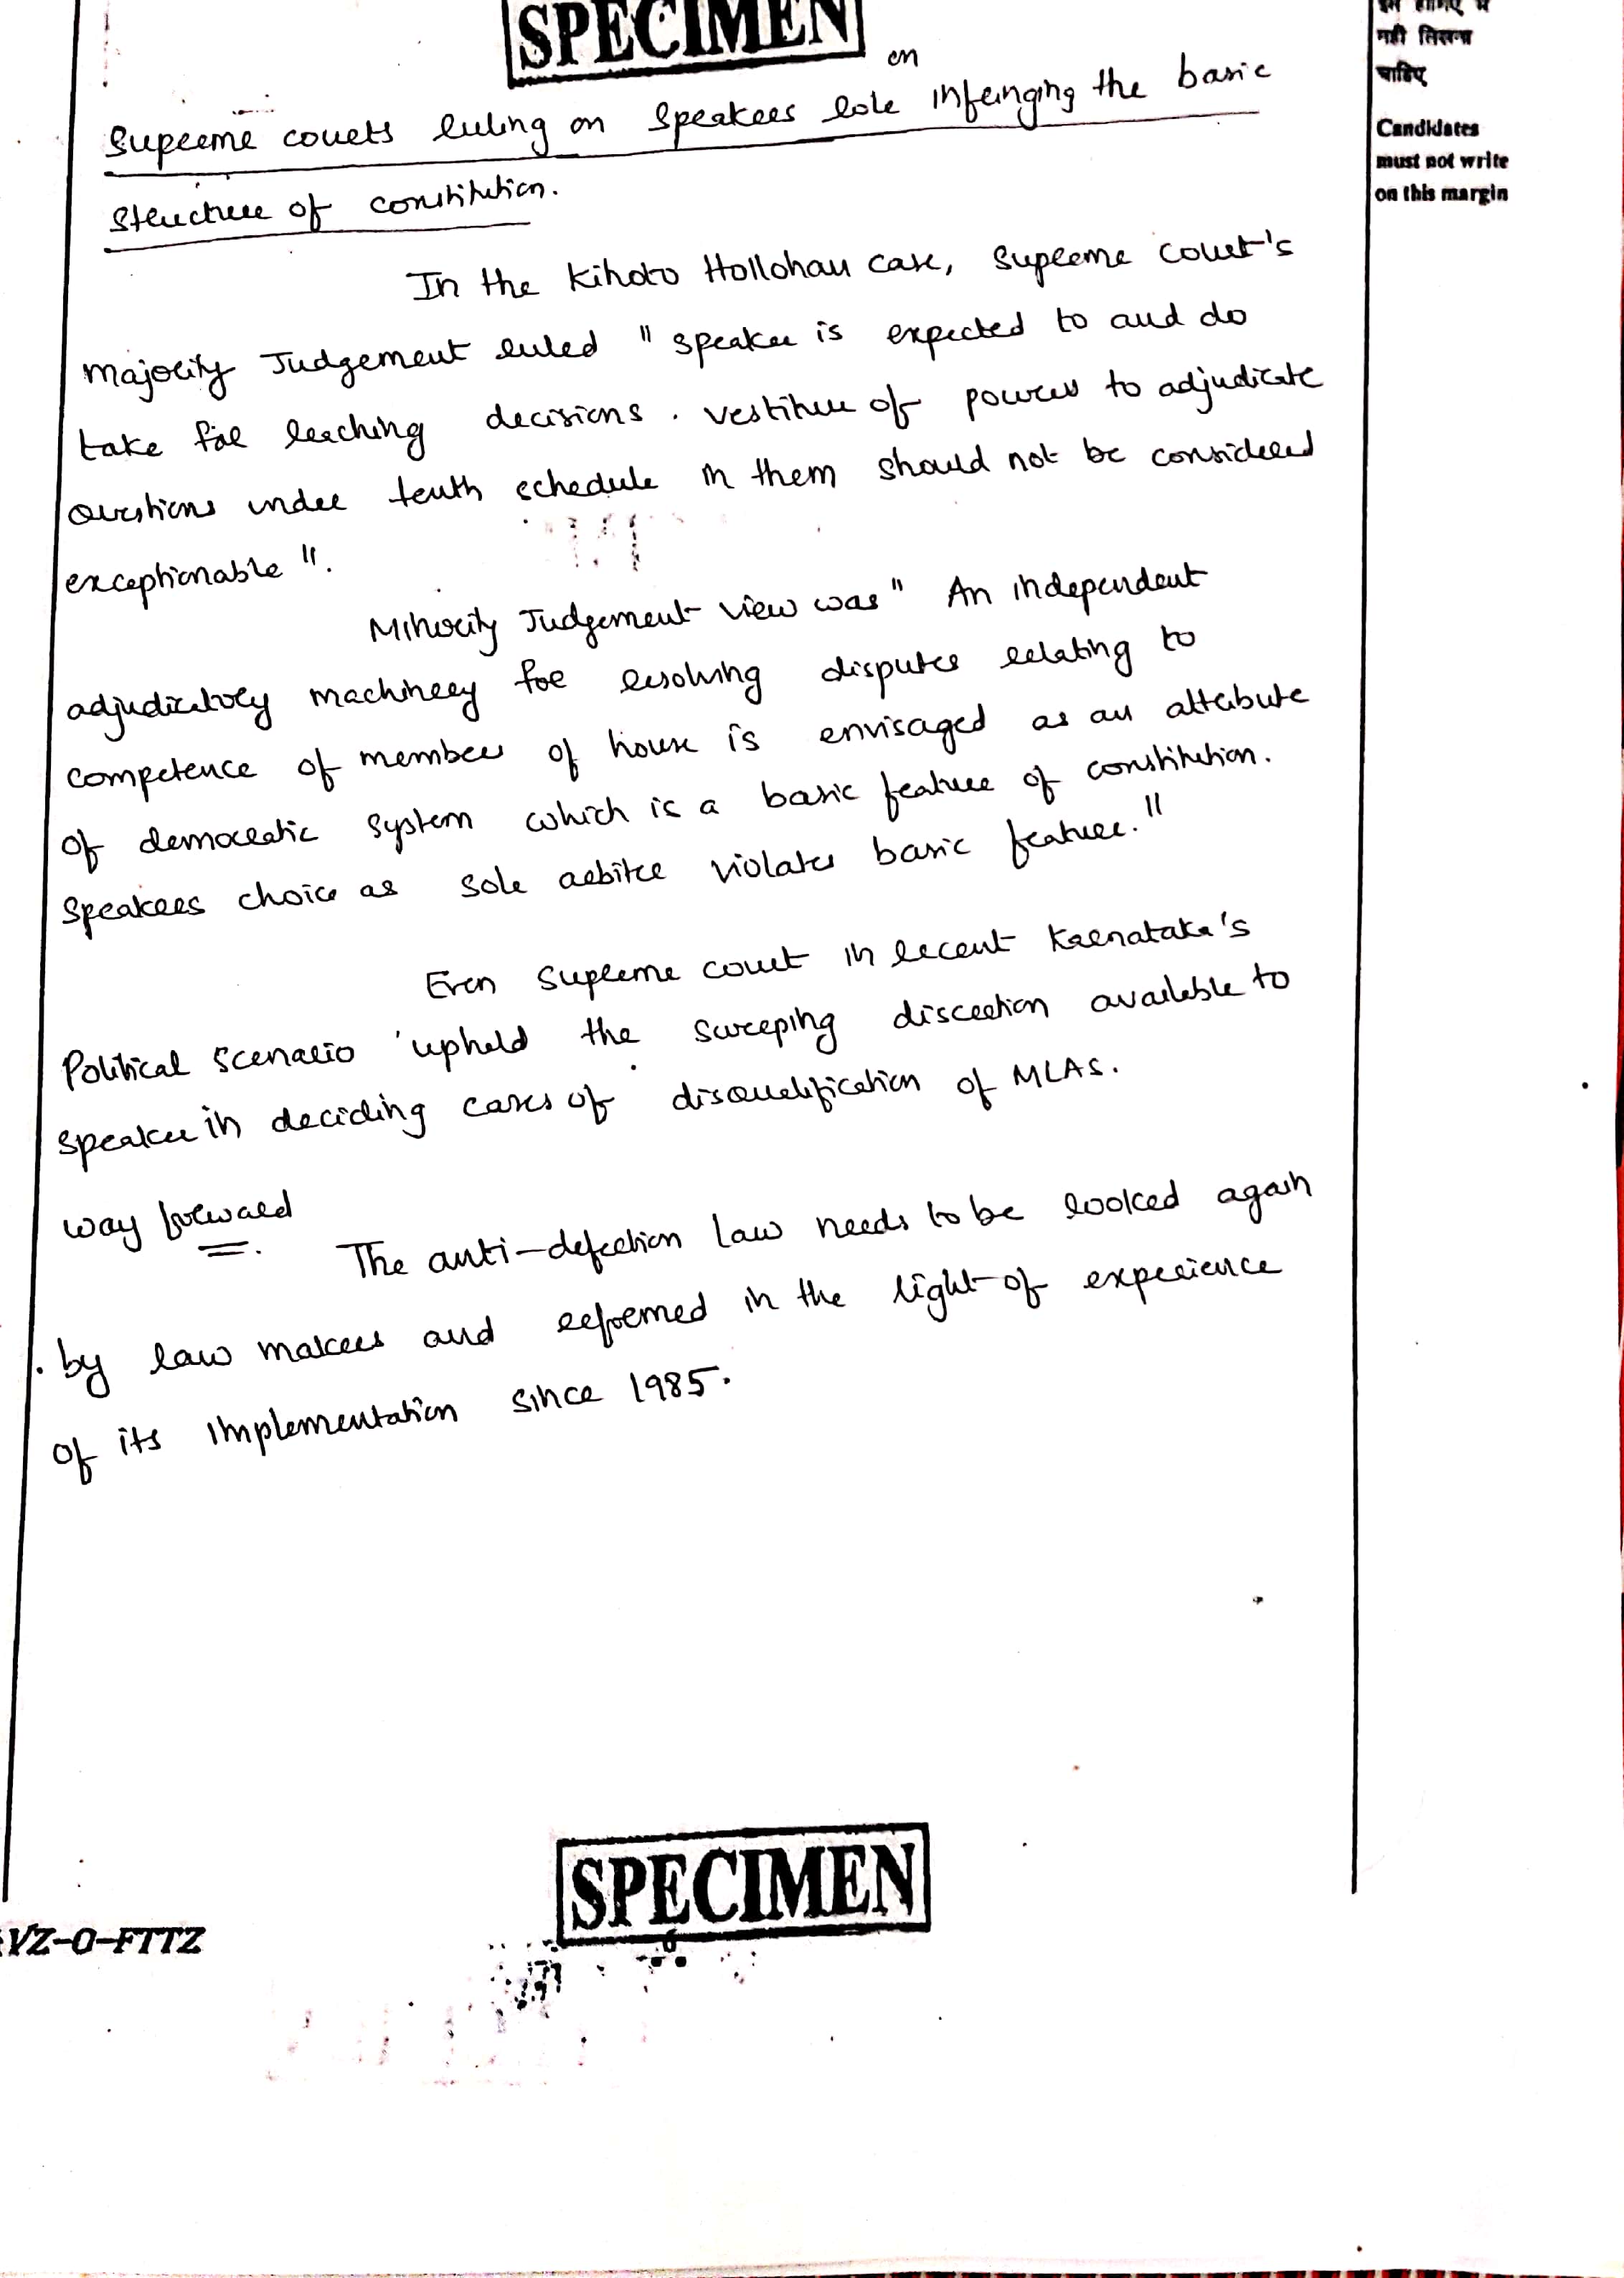 SPECIMEN
इस हाशिए में
नहीं लिखना
चाहिए
Candidates
must not write
on this margin
on
Supreme courts ruling on speakers role infringing the basic
structure of constitution.
In the Kihoto Hollohan case, Supreme Court's
majority Judgement ruled " speaker is expected to and do
take far reaching decisions. vestiture of powers to adjudicate
questions under tenth schedule in them should not be considered
exceptionable ".
Minority Judgement view was " An independent
adjudicatory machinery for resolving disputes relating to
competence of members of house is envisaged as an attribute
of democratic system which is a basic feature of constitution.
Speakers choice as sole arbiter violates basic feature."
Even Supreme court in recent Karnataka's
Political scenario upheld the sweeping discretion available to
speaker in deciding cases of disqualification of MLAS.
way forward
The anti-defection law needs to be looked again
by law makers and reformed in the light of experience
of its implementation since 1985.
SPECIMEN
VZ-O-FTTZ
6